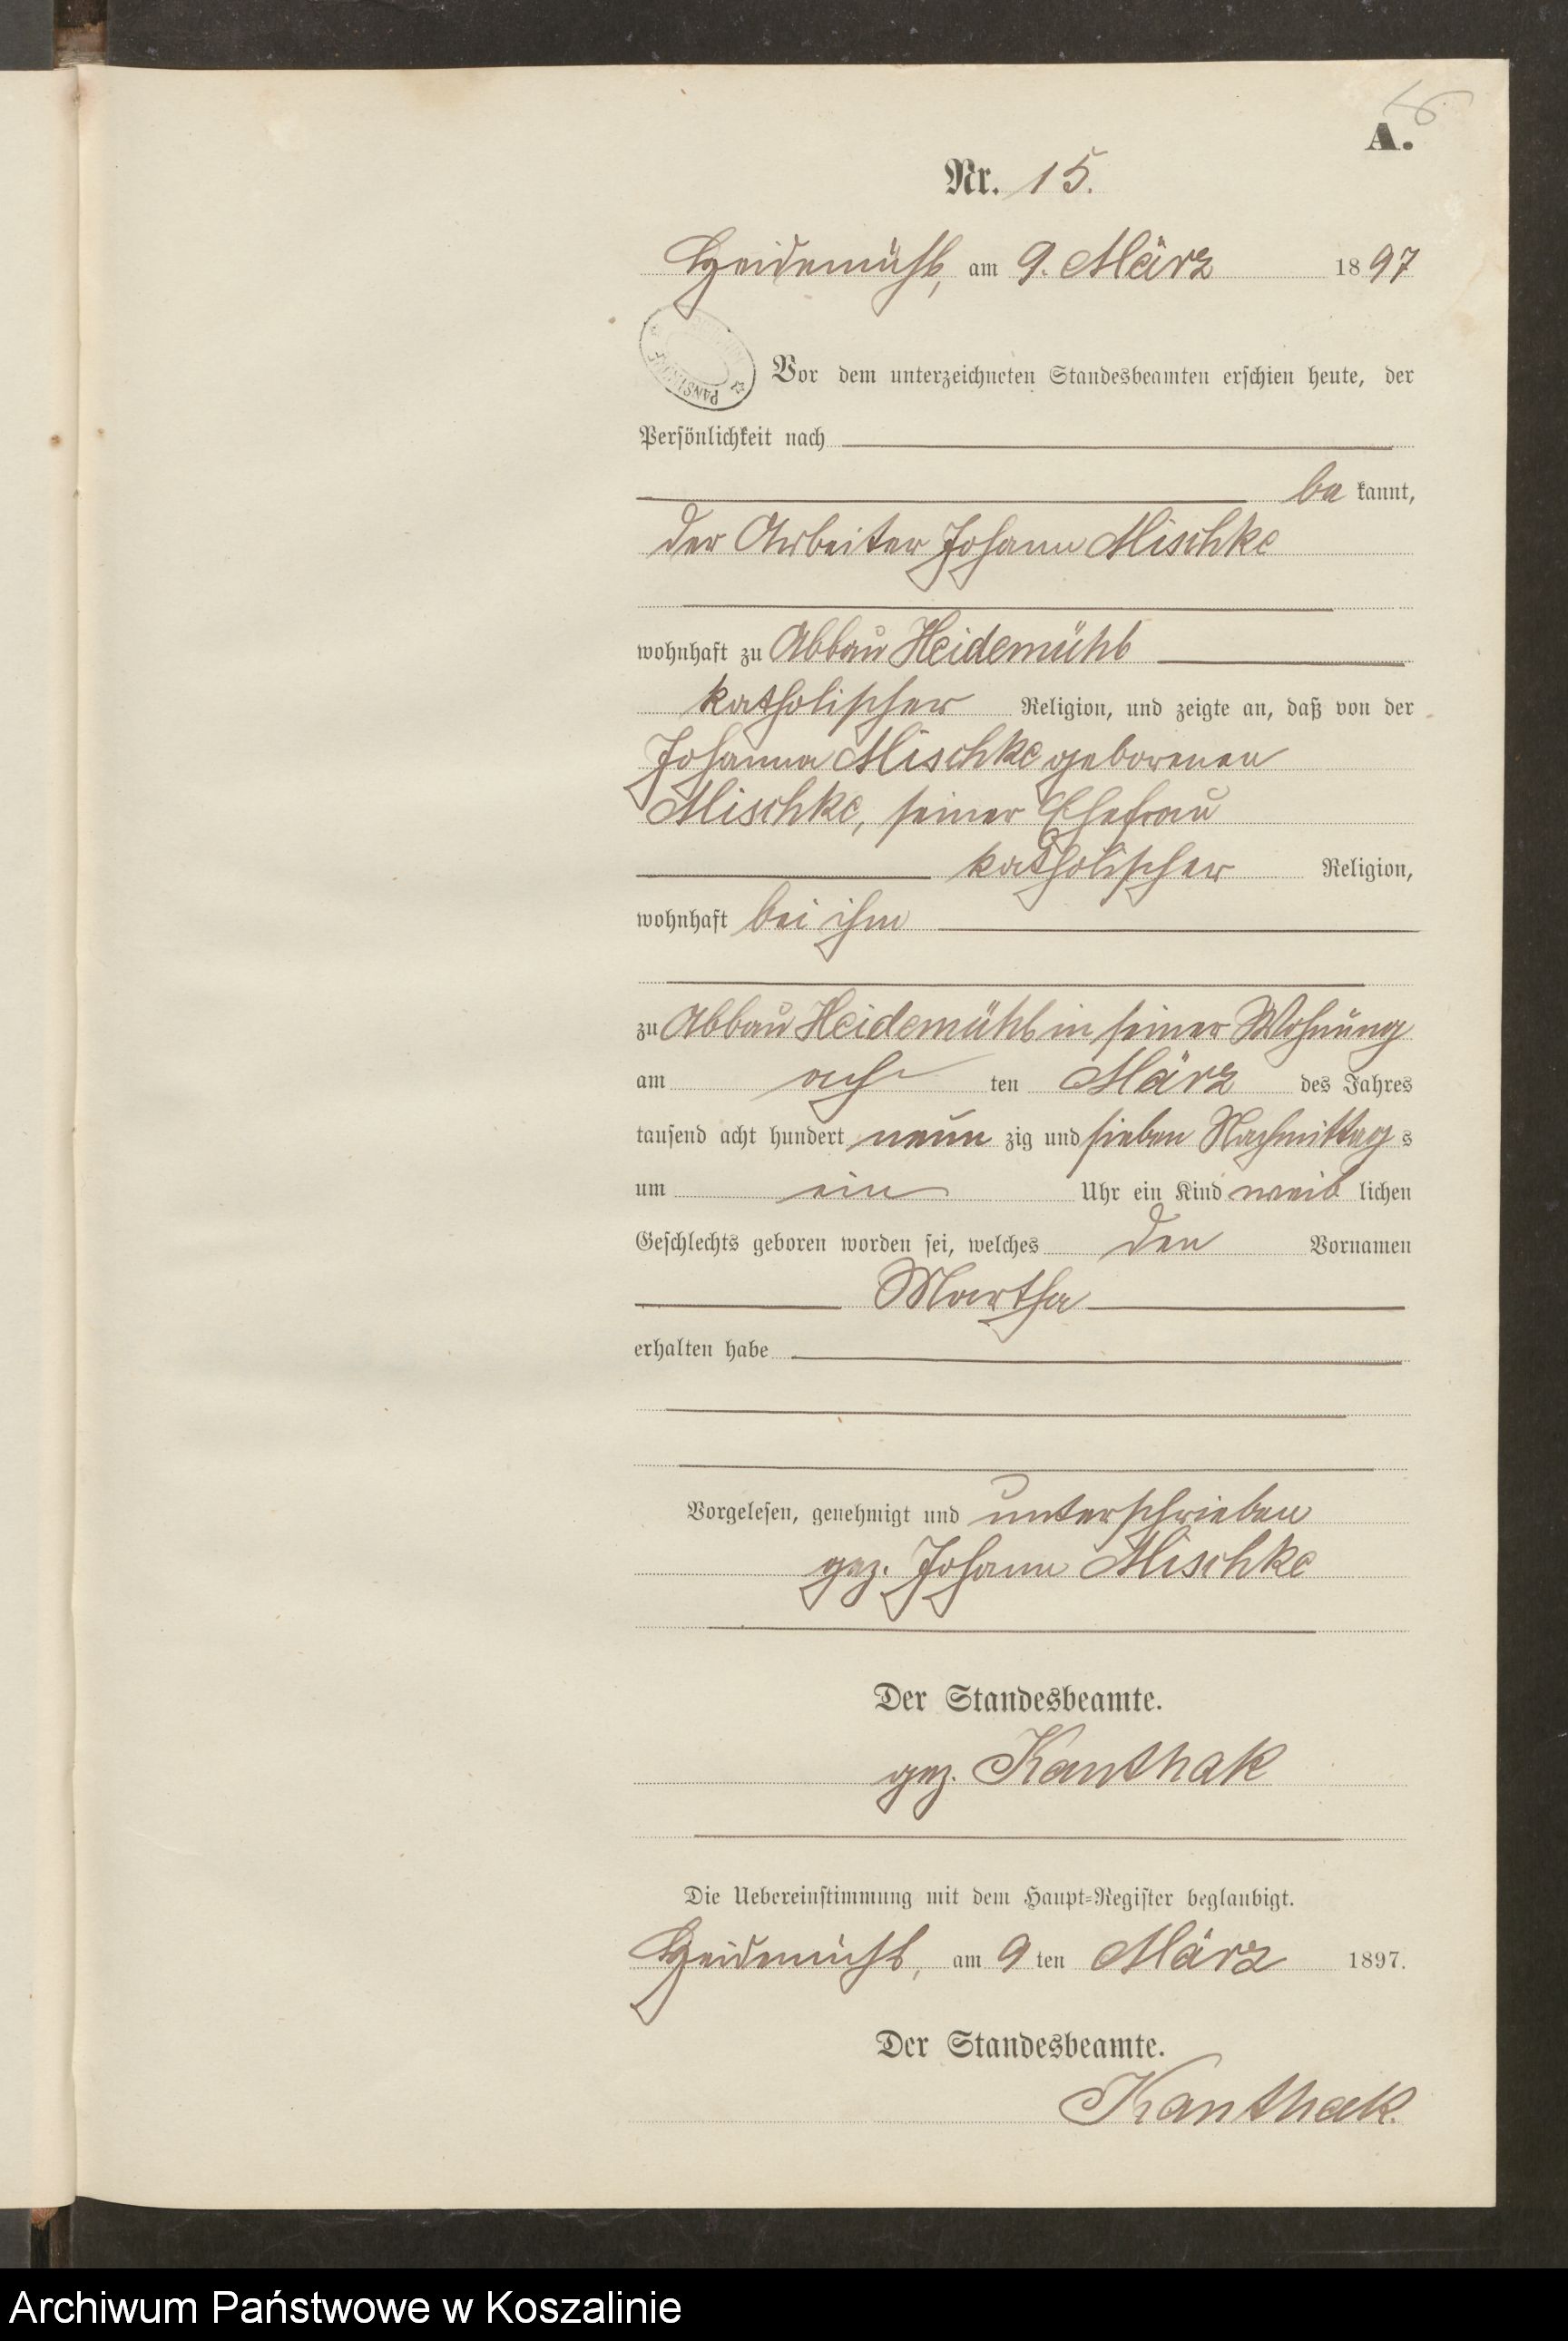 A.
Nr. 15.
Heidemühl, am 9. März 1897
Vor dem unterzeichneten Standesbeamten erschien heute, der
Persönlichkeit nach
be kannt,
der Arbeiter Johann Mischke
wohnhaft zu Abbau Heidemühl
katholischer Religion, und zeigte an, daß von der
Johanna Mischke geborenen
Mischke, seiner Ehefrau
katholischer Religion,
wohnhaft bei ihm
zu Abbau Heidemühl in seiner Wohnung
am ach ten März des Jahres
tausend acht hundert neun zig und sieben Nachmittag s
um ein Uhr ein Kind weib lichen
Geschlechts geboren worden sei, welches den Vornamen
Martha
erhalten habe
Vorgelesen, genehmigt und unterschrieben
gez. Johann Mischke
Der Standesbeamte.
gez. Kanthak
Die Uebereinstimmung mit dem Haupt-Register beglaubigt.
Heidemühl, am 9 ten März 1897.
Der Standesbeamte.
Kanthak.
Archiwum Państwowe w Koszalinie